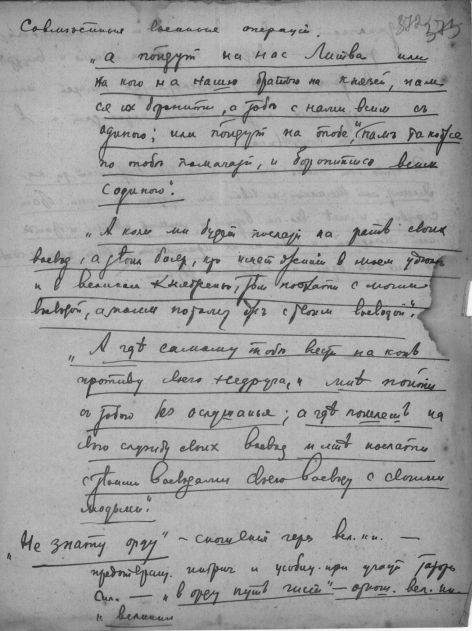 Совместныя военныя операціи.
372 373
„а пойдут на нас Литва или
на кого на нашю братью на князей, нам
ся их боронити, а тобѣ с нами всим съ
одиного; или пойдут на тобе, намъ такоже
по тобѣ помагати, и боронитися всим
с одиного".
„А коли ми будет послати на рать своих
воевод, а твоих бояр, кто имет жити в моем удѣле
и в великом княженьи, тѣм поѣхати с моим
воеводой, а моим потому жъ с твоим воеводой".
„А гдѣ самому тобѣ всѣсть на конь
противу своего недруга, и мнѣ пойти
с тобою без ослушанья; а гдѣ пошлешь на
свою службу своих воевод и мнѣ послати
с твоими воеводами своего воеводу с своими
людьми".
„Не знати орду" – сношенія через вел. кн. —
предотвращ. интриг и усобиц при участ. татар.
сил. — „в орду путь чист" – отнош. вел. кн.
и великим